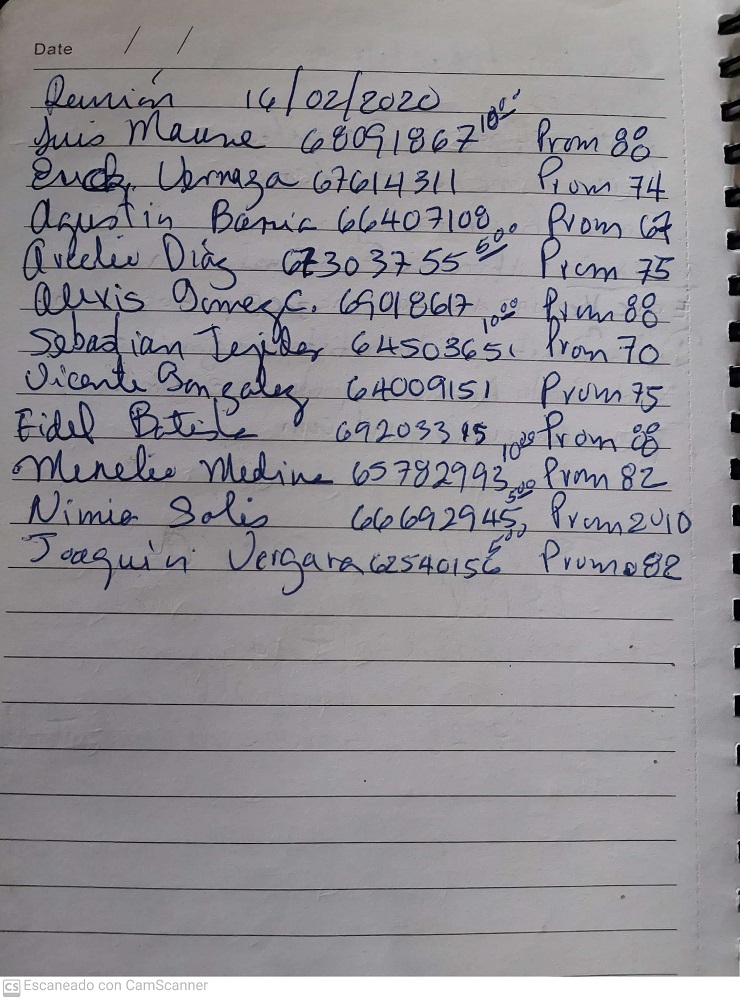 Date / /
Reunión 16/02/2020
Luis Maure 68091867 10.00 Prom 88
Erick Vernaza 67614311 Prom 74
Agustin Barria 66407108 Prom 67
Arcelio Díaz 67303755 5.00 Prom 75
Alexis Gomez C. 69018617 Prom 88
Sebastian Tejider 64503651 10.00 Prom 70
Vicente Gonzalez 64009151 Prom 75
Fidel Batista 69203315 Prom 88
Menelio Medina 65782993 10.00 Prom 82
Nimia Solis 66692945 5.00 Prom 2010
Joaquín Vergara 62540156 5.00 Promo 82
CS Escaneado con CamScanner